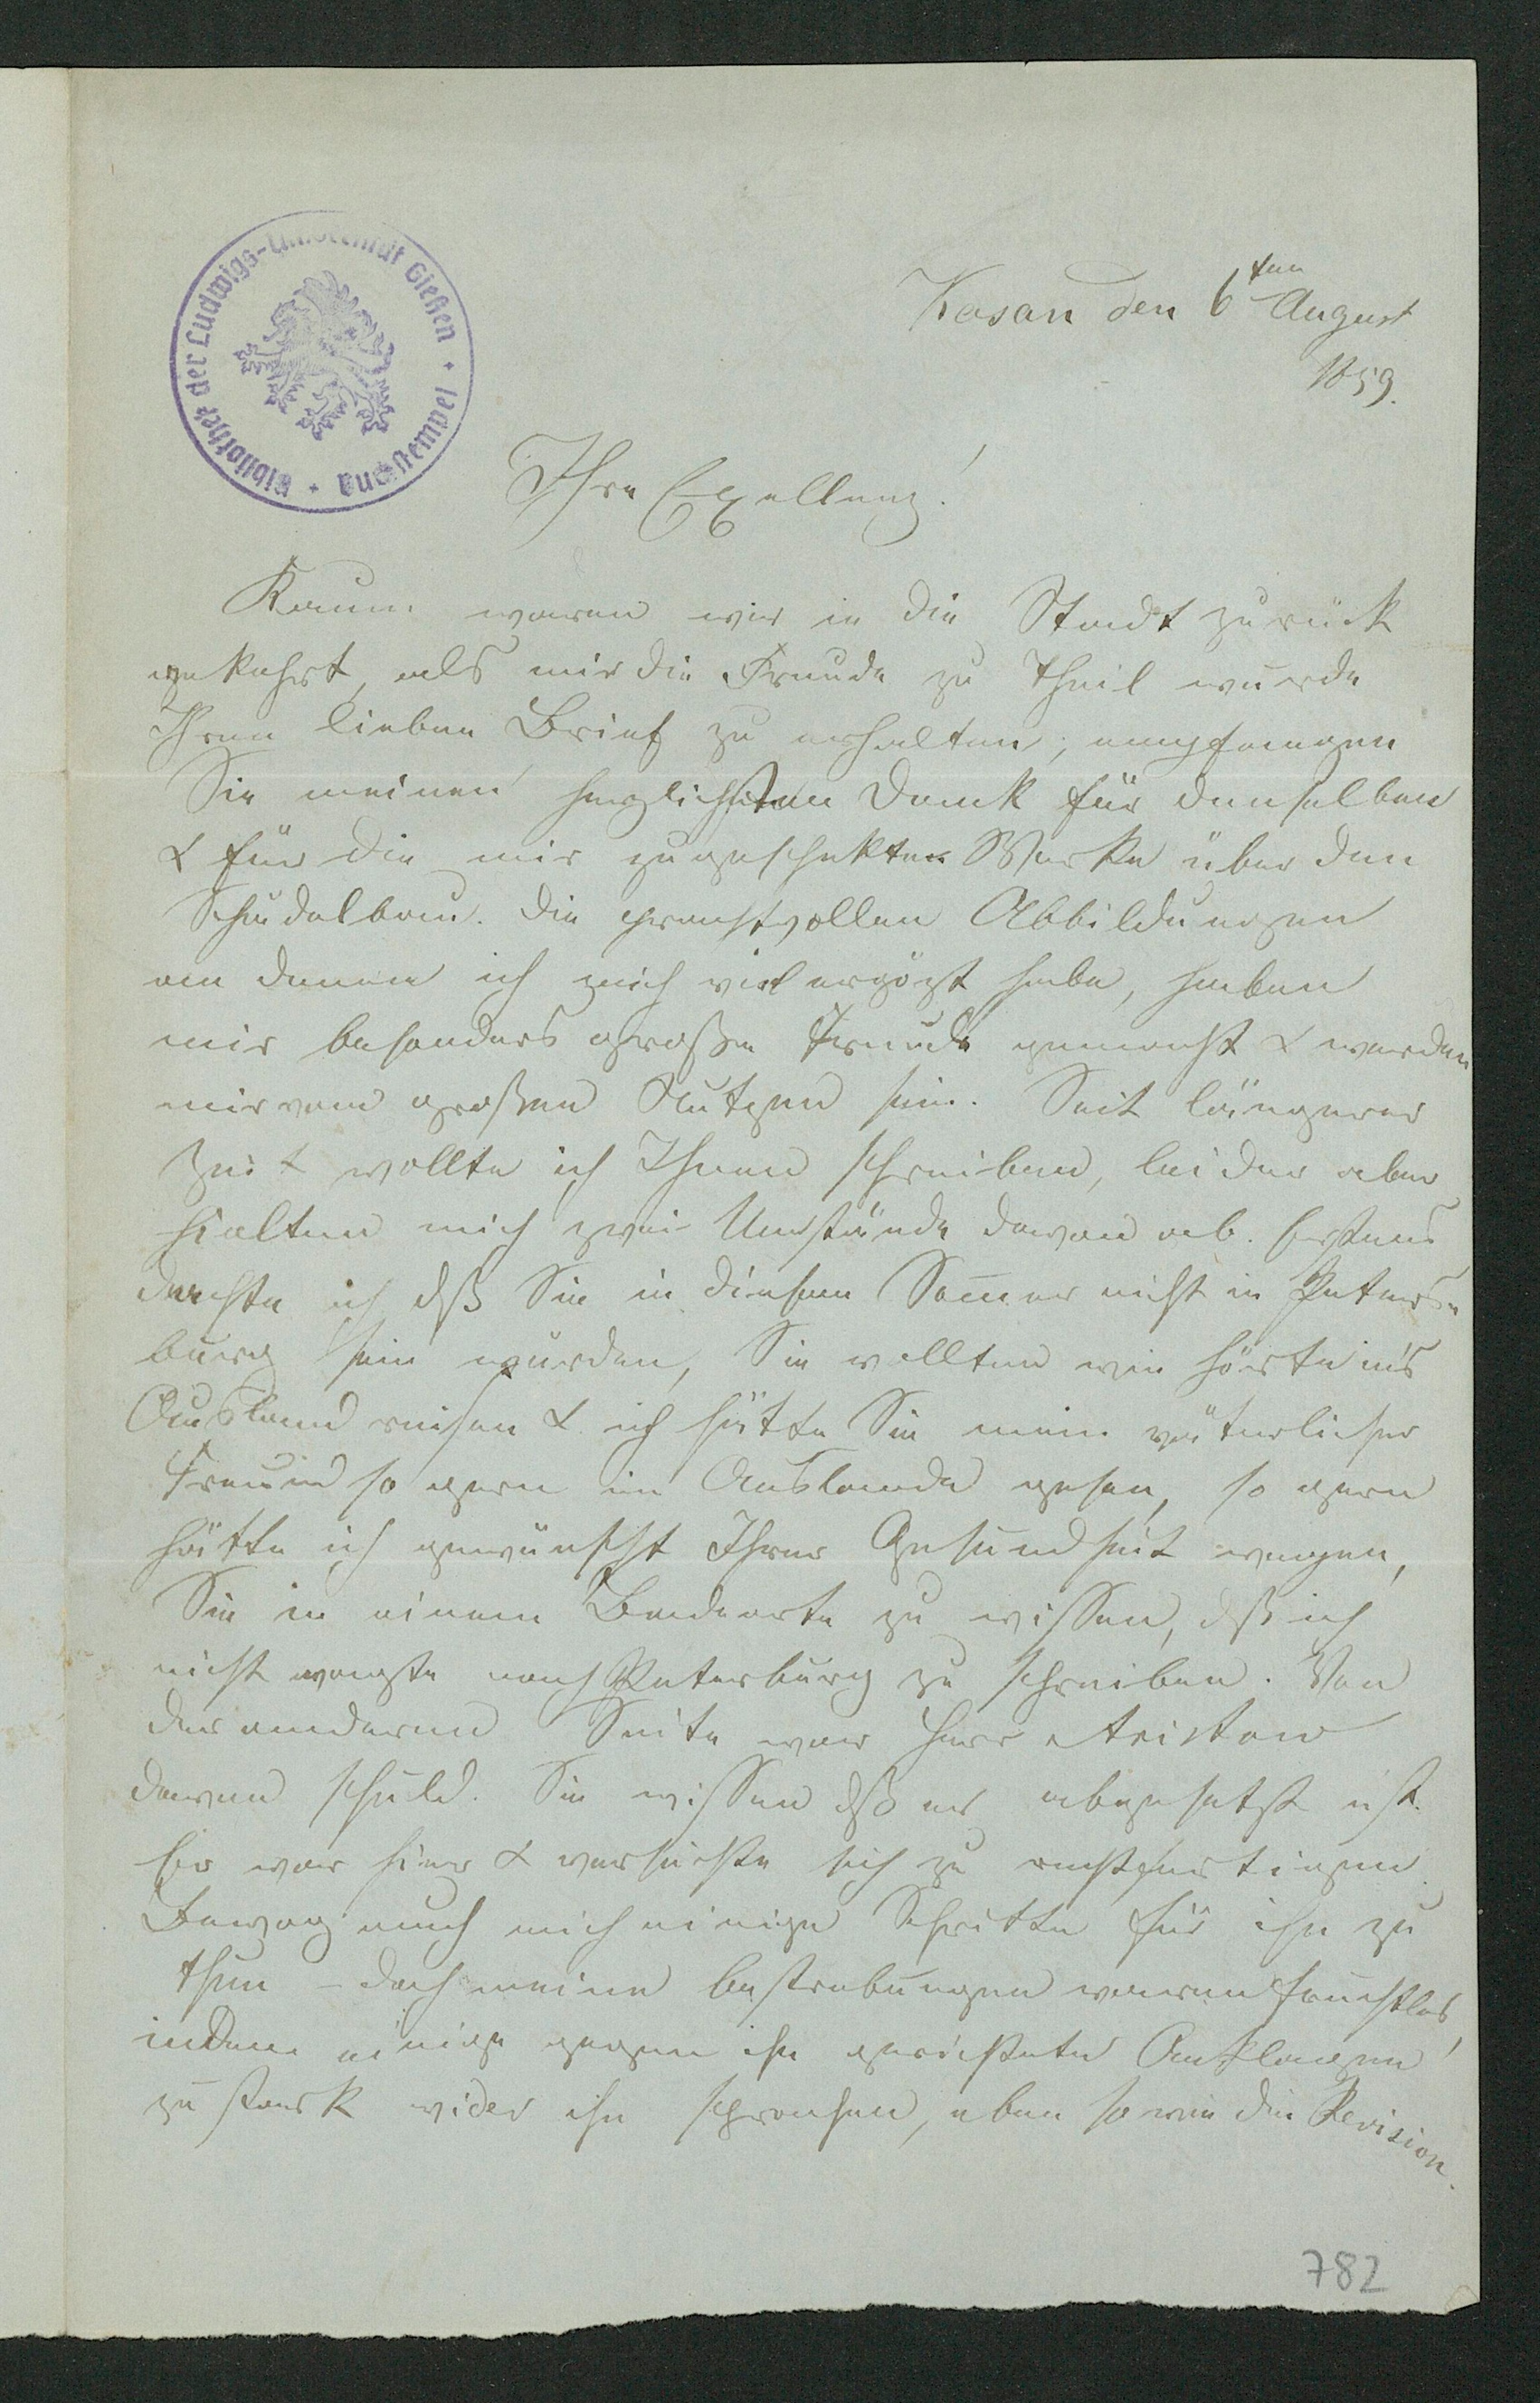 Bibliothek der Ludwigs-Universität Gießen + Buchstempel +
Kasan den 6ten August
1859.
Ihre Exellenz!
Kaum waren wir in die Stadt zurück
gekehrt, als mir die Freude zu Theil wurde
Ihren lieben Brief zu erhalten; empfangen
Sie meinen herzlichsten Dank für denselben
& für die mir zugeschikten Werke über den
Schädelbau. Die prachtvollen Abbildungen
an denen ich mich viel ergözt habe, haben
mir besonders große Freude gemacht & werden
mir vom großen Nutzen sein. Seit längerer
Zeit wollte ich Ihnen schreiben, leider aber
hielten mich zwei Umstände davon ab. Erstens
dachte ich dß Sie in diesem Somer nicht in Peters-
burg sein wurden, Sie wollten wie hörte in's
Ausland reisen & ich hätte Sie mein väterlicher
Freund so gern im Auslande gesehen, so gern
hätte ich gewünscht Ihrer Gesundheit wegen,
Sie in einem Badeorte zu wissen, dß ich
nicht wagte nach Petersburg zu schreiben. Von
der anderen Seite war Herr Aristow
davon schuld. Sie wissen dß er abgesetzt ist.
Er war hier & versuchte sich zu rechtfertigen.
Bewog auch mich einige Schritte für ihn zu
thun – doch meine bestrebungen waren fruchtlos,
indem einige gegen ihn gerichtete Anklagen
zu stark wider ihn sprachen, eben so wie die Revision.
782